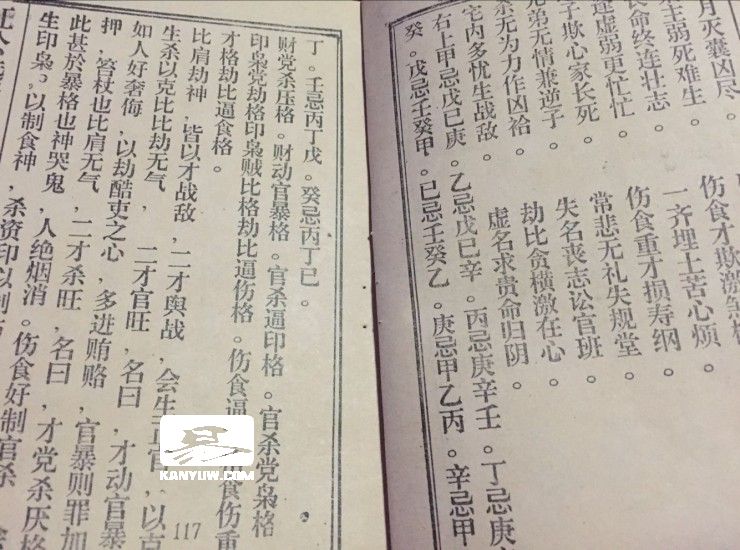 月灭囊凶尽。
主弱死难生。 伤食才欺激煞
长命终连壮志。 一齐埋上苦心烦。
连虚弱更忙忙 伤食重才损寿纲。
子欺心家长死。 常悲无礼失规堂。
兄弟无情兼逆子。 失名丧志讼官班。
杀无为力作凶袷。 劫比贪横激在心。
宅内多忧生战敌。 虚名求贵命归阴。
右上甲忌戊己庚。乙忌戊己辛。丙忌庚辛壬。丁忌庚
癸。戊忌壬癸甲。己忌壬癸乙。庚忌甲乙丙。辛忌甲
丁。壬忌丙丁戊。癸忌丙丁己。
财党杀压格。财动官暴格。官杀逼印格。官杀党枭格
印枭党劫格印枭贼比格劫比逼伤格。伤食逼 食伤重
才格劫比逼食格。
比肩劫神，皆以才战敌，二才舆战，会生正官，以克
生杀以克比比劫无气，二才官旺，名曰，才动官暴
如人好奢侮，以劫酷吏之心，多进贿赂，官暴则罪加
押，笞杖也比肩无气，二才杀旺，名曰，才党杀厌格
此甚於暴格也神哭鬼 人绝烟消。伤食好制官杀
生印枭。以制食神，杀资印以制
117
易
KANYUW.COM